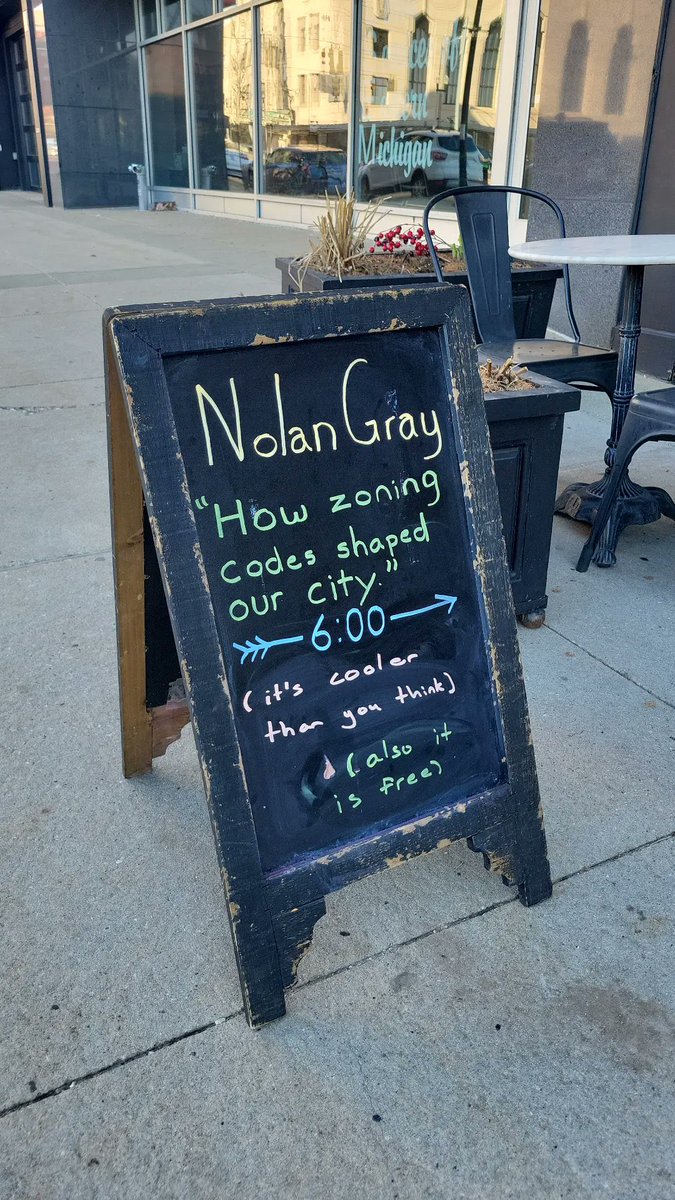 Michigan
Nolan Gray
"How zoning
codes shaped
our city."
6:00
(it's cooler
than you think)
(also it
is free)